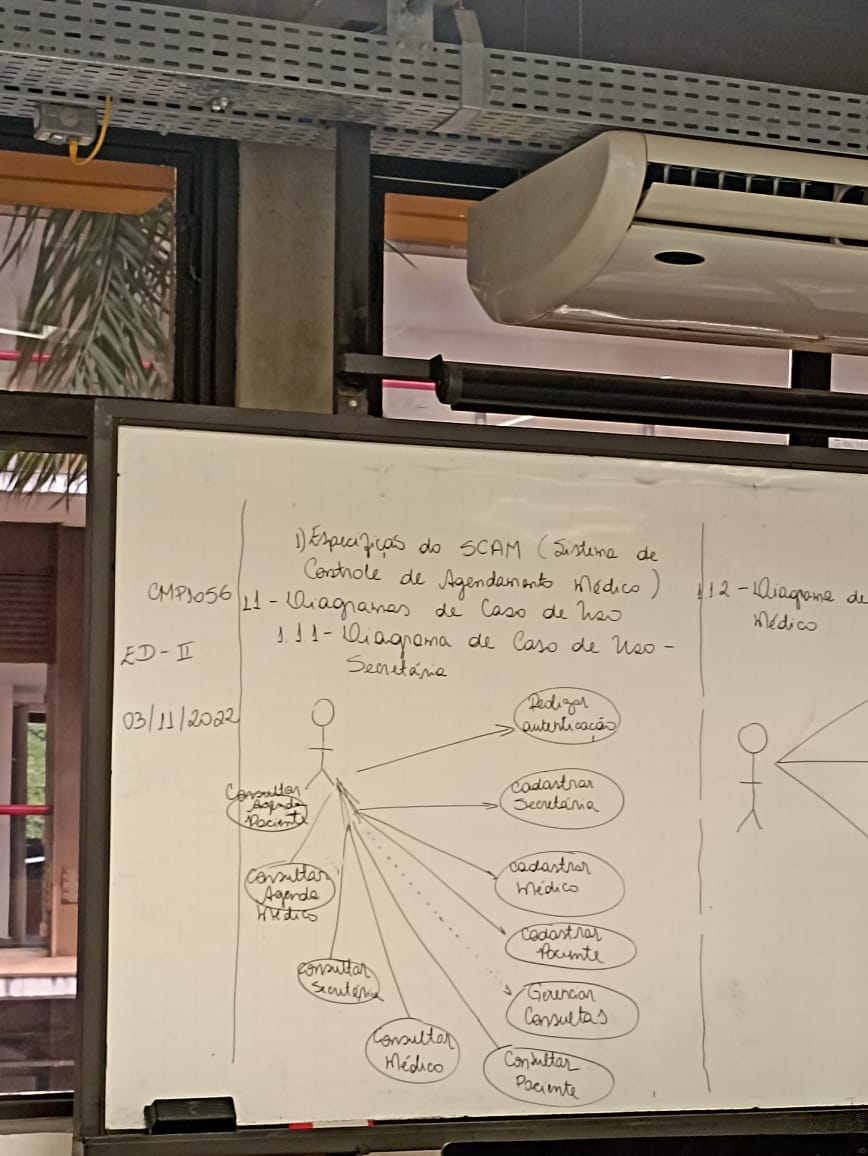 CMP1056
ED-II
03/11/2022
1) Especifiças do SCAM (Sistema de
Controle de Agendamento Médico)
1.1 - Diagramas de Caso de Uso
1.1.1 - Diagrama de Caso de Uso -
Secretária
Realizar
autenticação
Cadastrar
Secretária
Cadastrar
Médico
Cadastrar
Paciente
Gerenciar
Consultas
Consultar
Paciente
Consultar
Médico
Consultar
Secretária
Consultar
Agenda
Médico
Consultar
Agenda
Paciente
1.1.2 - Diagrama de
Médico